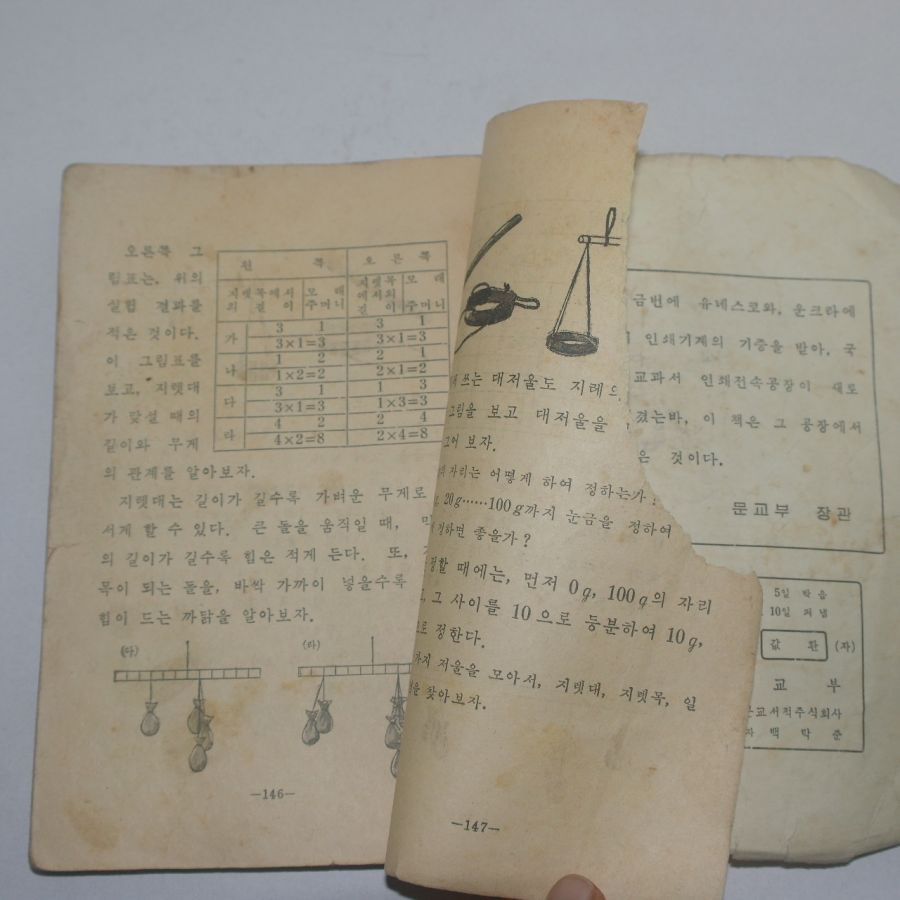 오른쪽 그
림표는, 위의
실험 결과를
적은 것이다.
이 그림표를
보고, 지렛대
가 맞설 때의
길이와 무게
의 관계를 알아보자.
왼 쪽 오 른 쪽
지렛목에서의 길이 모래주머니 지렛목에서의 길이 모래주머니
가 3 1 3 1
3×1=3 3×1=3
나 1 2 2 1
1×2=2 2×1=2
다 3 1 1 3
3×1=3 1×3=3
라 4 2 2 4
4×2=8 2×4=8
지렛대는 길이가 길수록 가벼운 무게로
서게 할 수 있다. 큰 돌을 움직일 때,
의 길이가 길수록 힘은 적게 든다. 또,
목이 되는 돌을, 바싹 가까이 넣을수록
힘이 드는 까닭을 알아보자.
(다) (라)
—146—
쓰는 대저울도 지레의
그림을 보고 대저울을
그어 보자.
자리는 어떻게 하여 정하는가?
20g……100g까지 눈금을 정하여
정하면 좋을가?
정할 때에는, 먼저 0g, 100g의 자리
그 사이를 10으로 등분하여 10g,
로 정한다.
가지 저울을 모아서, 지렛대, 지렛목, 일
을 찾아보자.
—147—
금번에 유네스코와, 운크라에
인쇄기계의 기증을 받아, 국
교과서 인쇄전속공장이 새로
겼는바, 이 책은 그 공장에서
은 것이다.
문교부 장관
5일 박음
10일 펴냄
값 환 (자)
교 부
교서적주식회사
자 백 낙 준